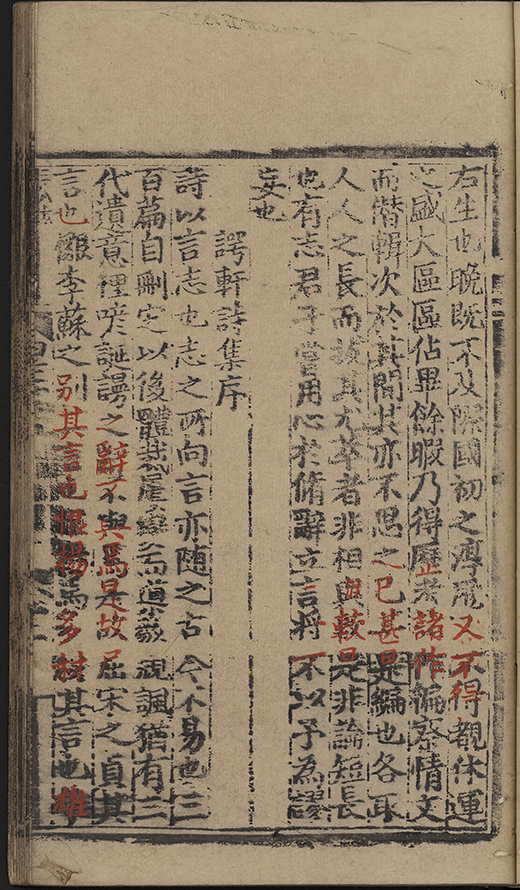 右生也晚既不及際國初之淳龐又不得觀休運
之盛大區區佔畢餘暇乃得歷考諸作徧察情文
而僭輯次於其間其亦不思之已甚是編也各取
人人之長而拔其尤萃者非相與較是非論短長
也有志君子嘗用心於脩辭立言將不以予為謬
妄也
諤軒詩集序
詩以言志也志之所向言亦隨之古今不易也三
百篇自刪定以後體裁屢變而道揚規諷猶有三
代遺意俚喭誕謾之辭不與焉是故屈宋之貞其
言也 李蘇之別其言也 楊馬多材其言也雄